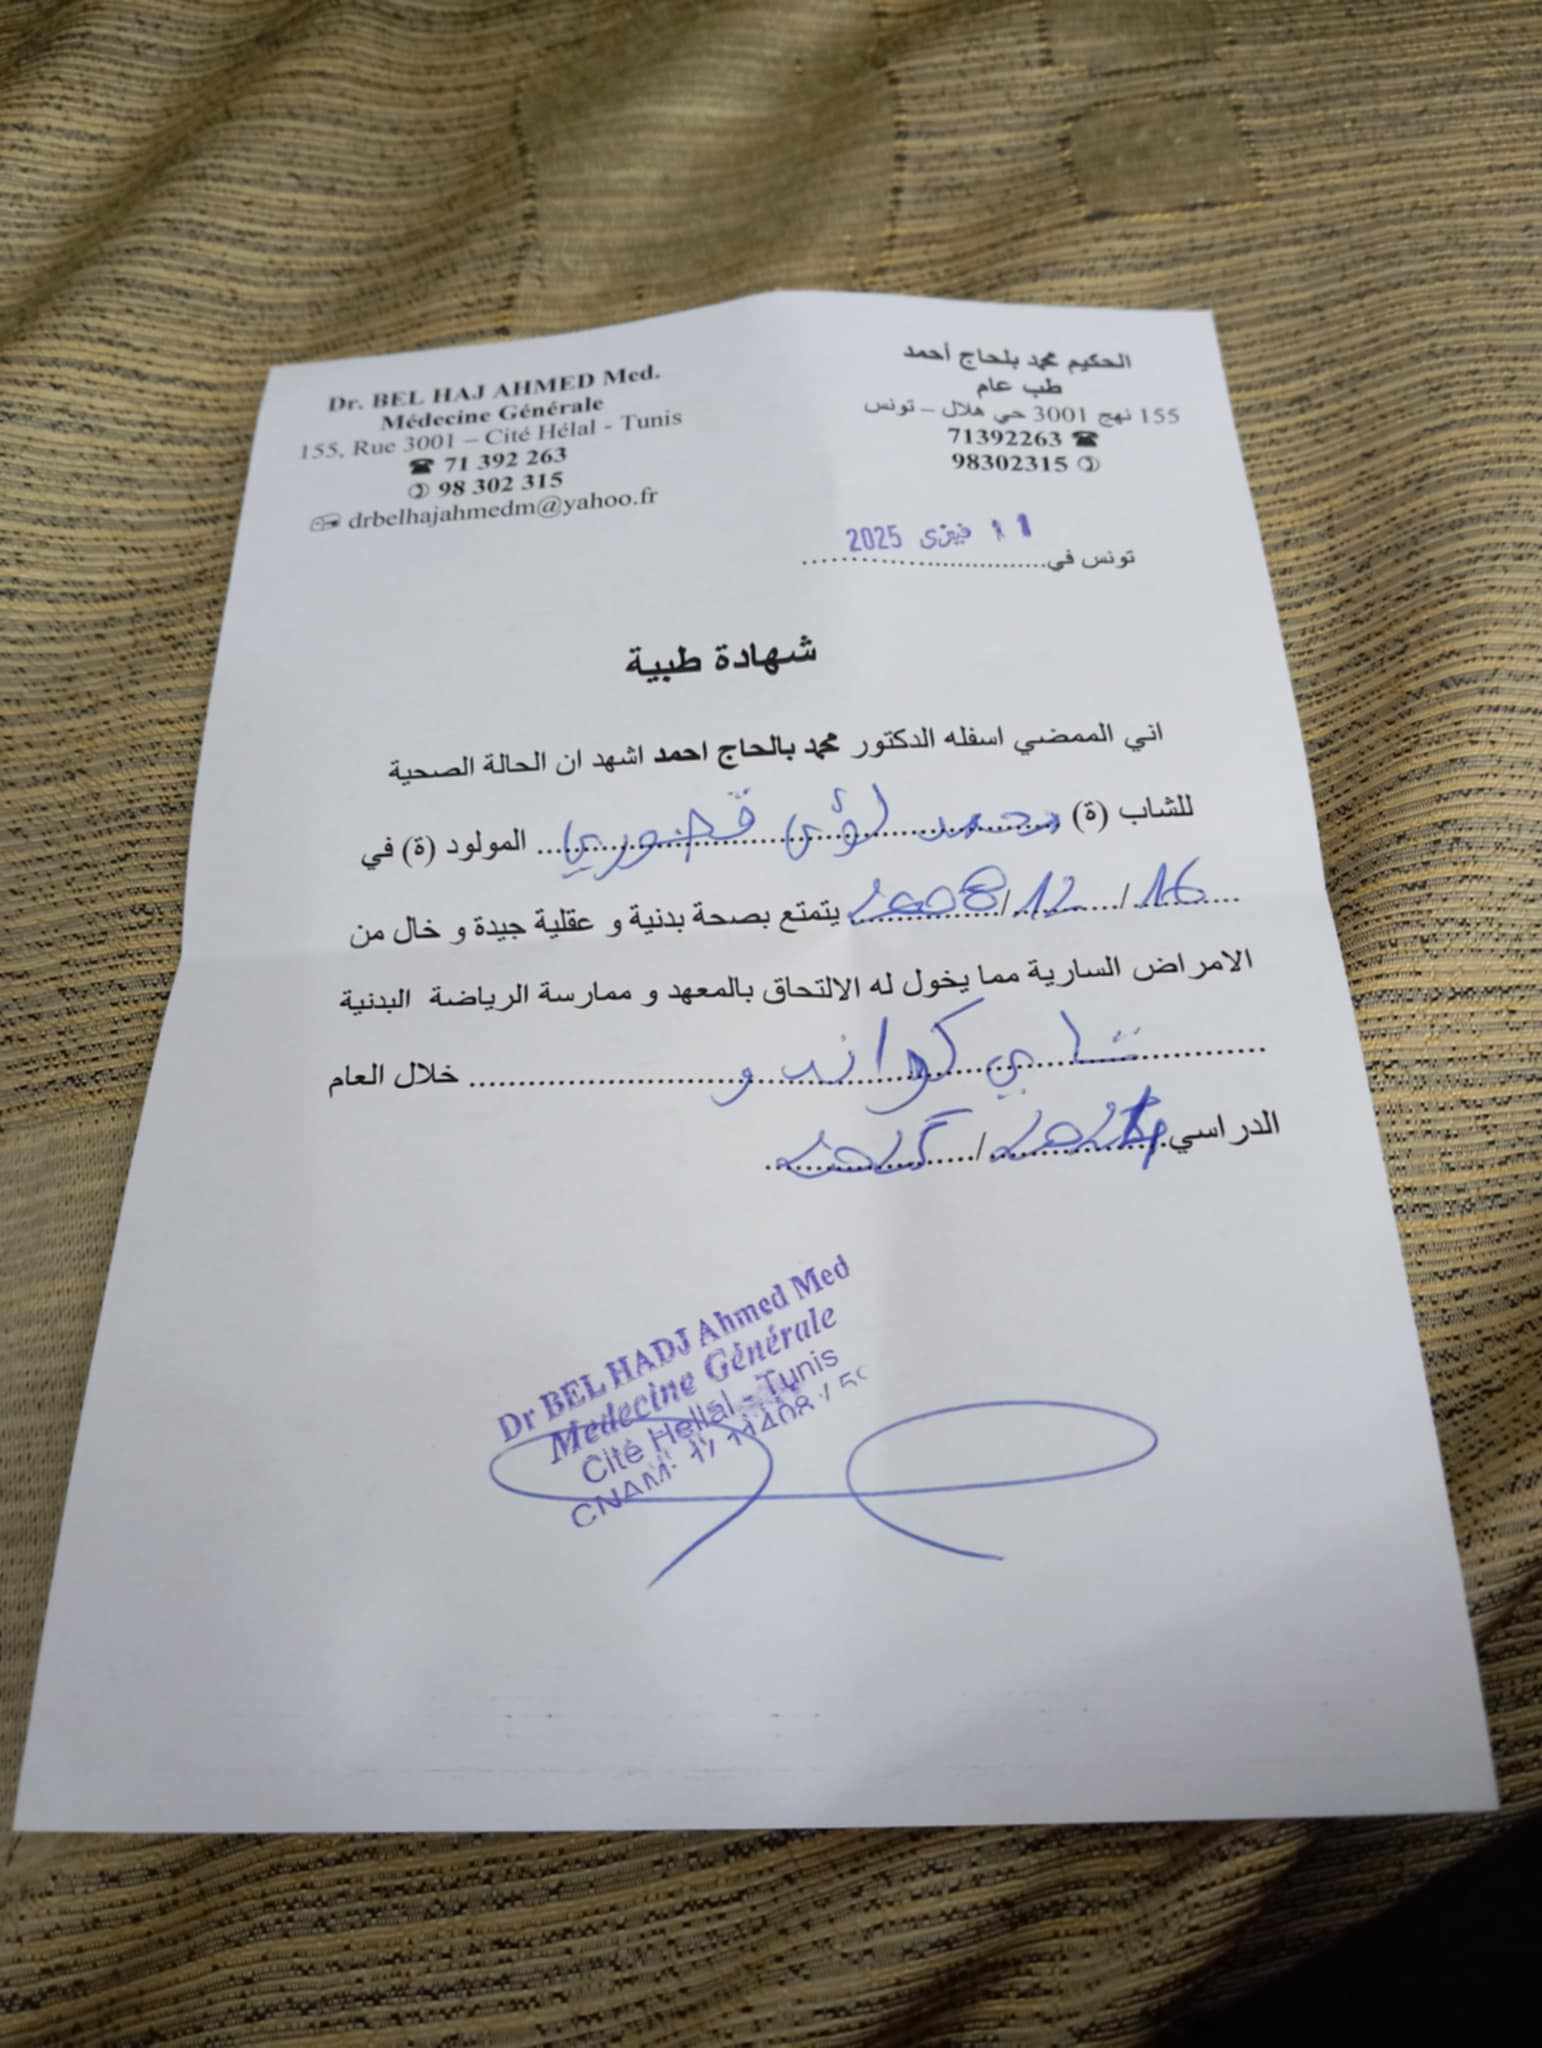 Dr. BEL HAJ AHMED Med.
Médecine Générale
155, Rue 3001 – Cité Hélal - Tunis
☎ 71 392 263
✆ 98 302 315
drbelhajahmedm@yahoo.fr
الحكيم محمد بلحاج أحمد
طب عام
155 نهج 3001 حي هلال – تونس
71392263 ☎
98302315 ✆
تونس في 11 فيفري 2025
شهادة طبية
اني الممضي اسفله الدكتور محمد بالحاج احمد اشهد ان الحالة الصحية
للشاب (ة) محمد لؤي المولود (ة) في
16/12/2008 يتمتع بصحة بدنية و عقلية جيدة و خال من
الامراض السارية مما يخول له الالتحاق بالمعهد و ممارسة الرياضة البدنية
تاي كواندو خلال العام
الدراسي 2024/2025
Dr BEL HADJ Ahmed Med
Medecine Générale
Cité Hellal - Tunis
CNAM